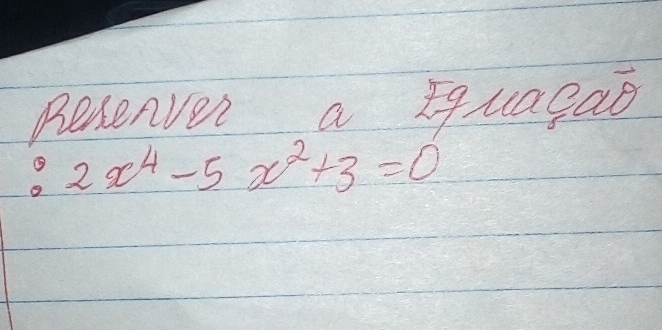 Resenver a Equação
: 2x⁴-5x²+3=0